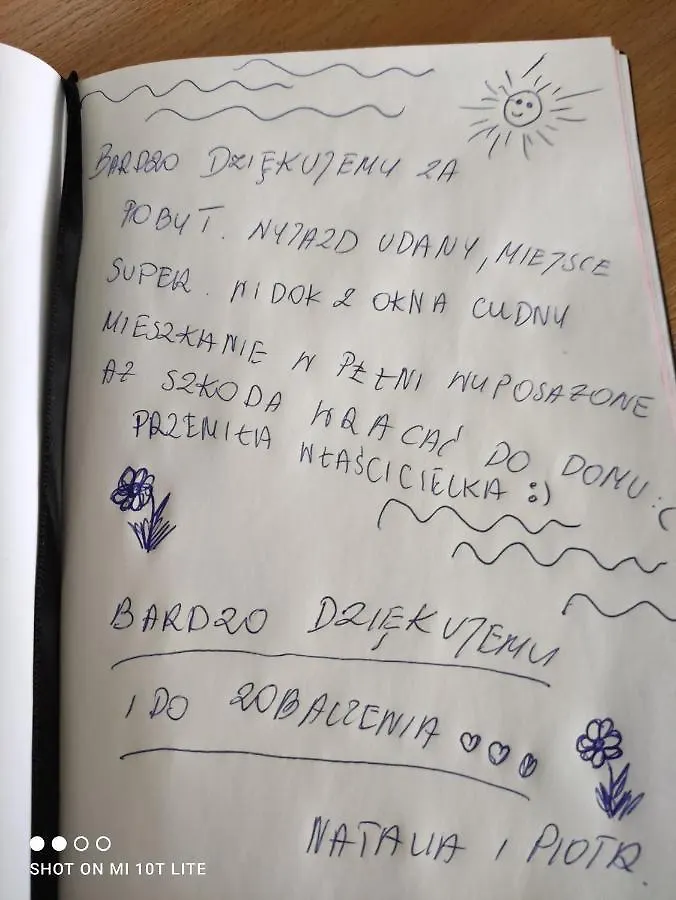 BARDZO DZIĘKUJEMY ZA
POBYT. WYJAZD UDANY, MIEJSCE
SUPER. WIDOK Z OKNA CUDNY
MIESZKANIE W PEŁNI WYPOSAŻONE
AŻ SZKODA WRACAĆ DO DOMU :(
PRZEMIŁA WŁAŚCICIELKA :)
BARDZO DZIĘKUJEMY
I DO ZOBACZENIA
NATALIA I PIOTR.
SHOT ON MI 10T LITE